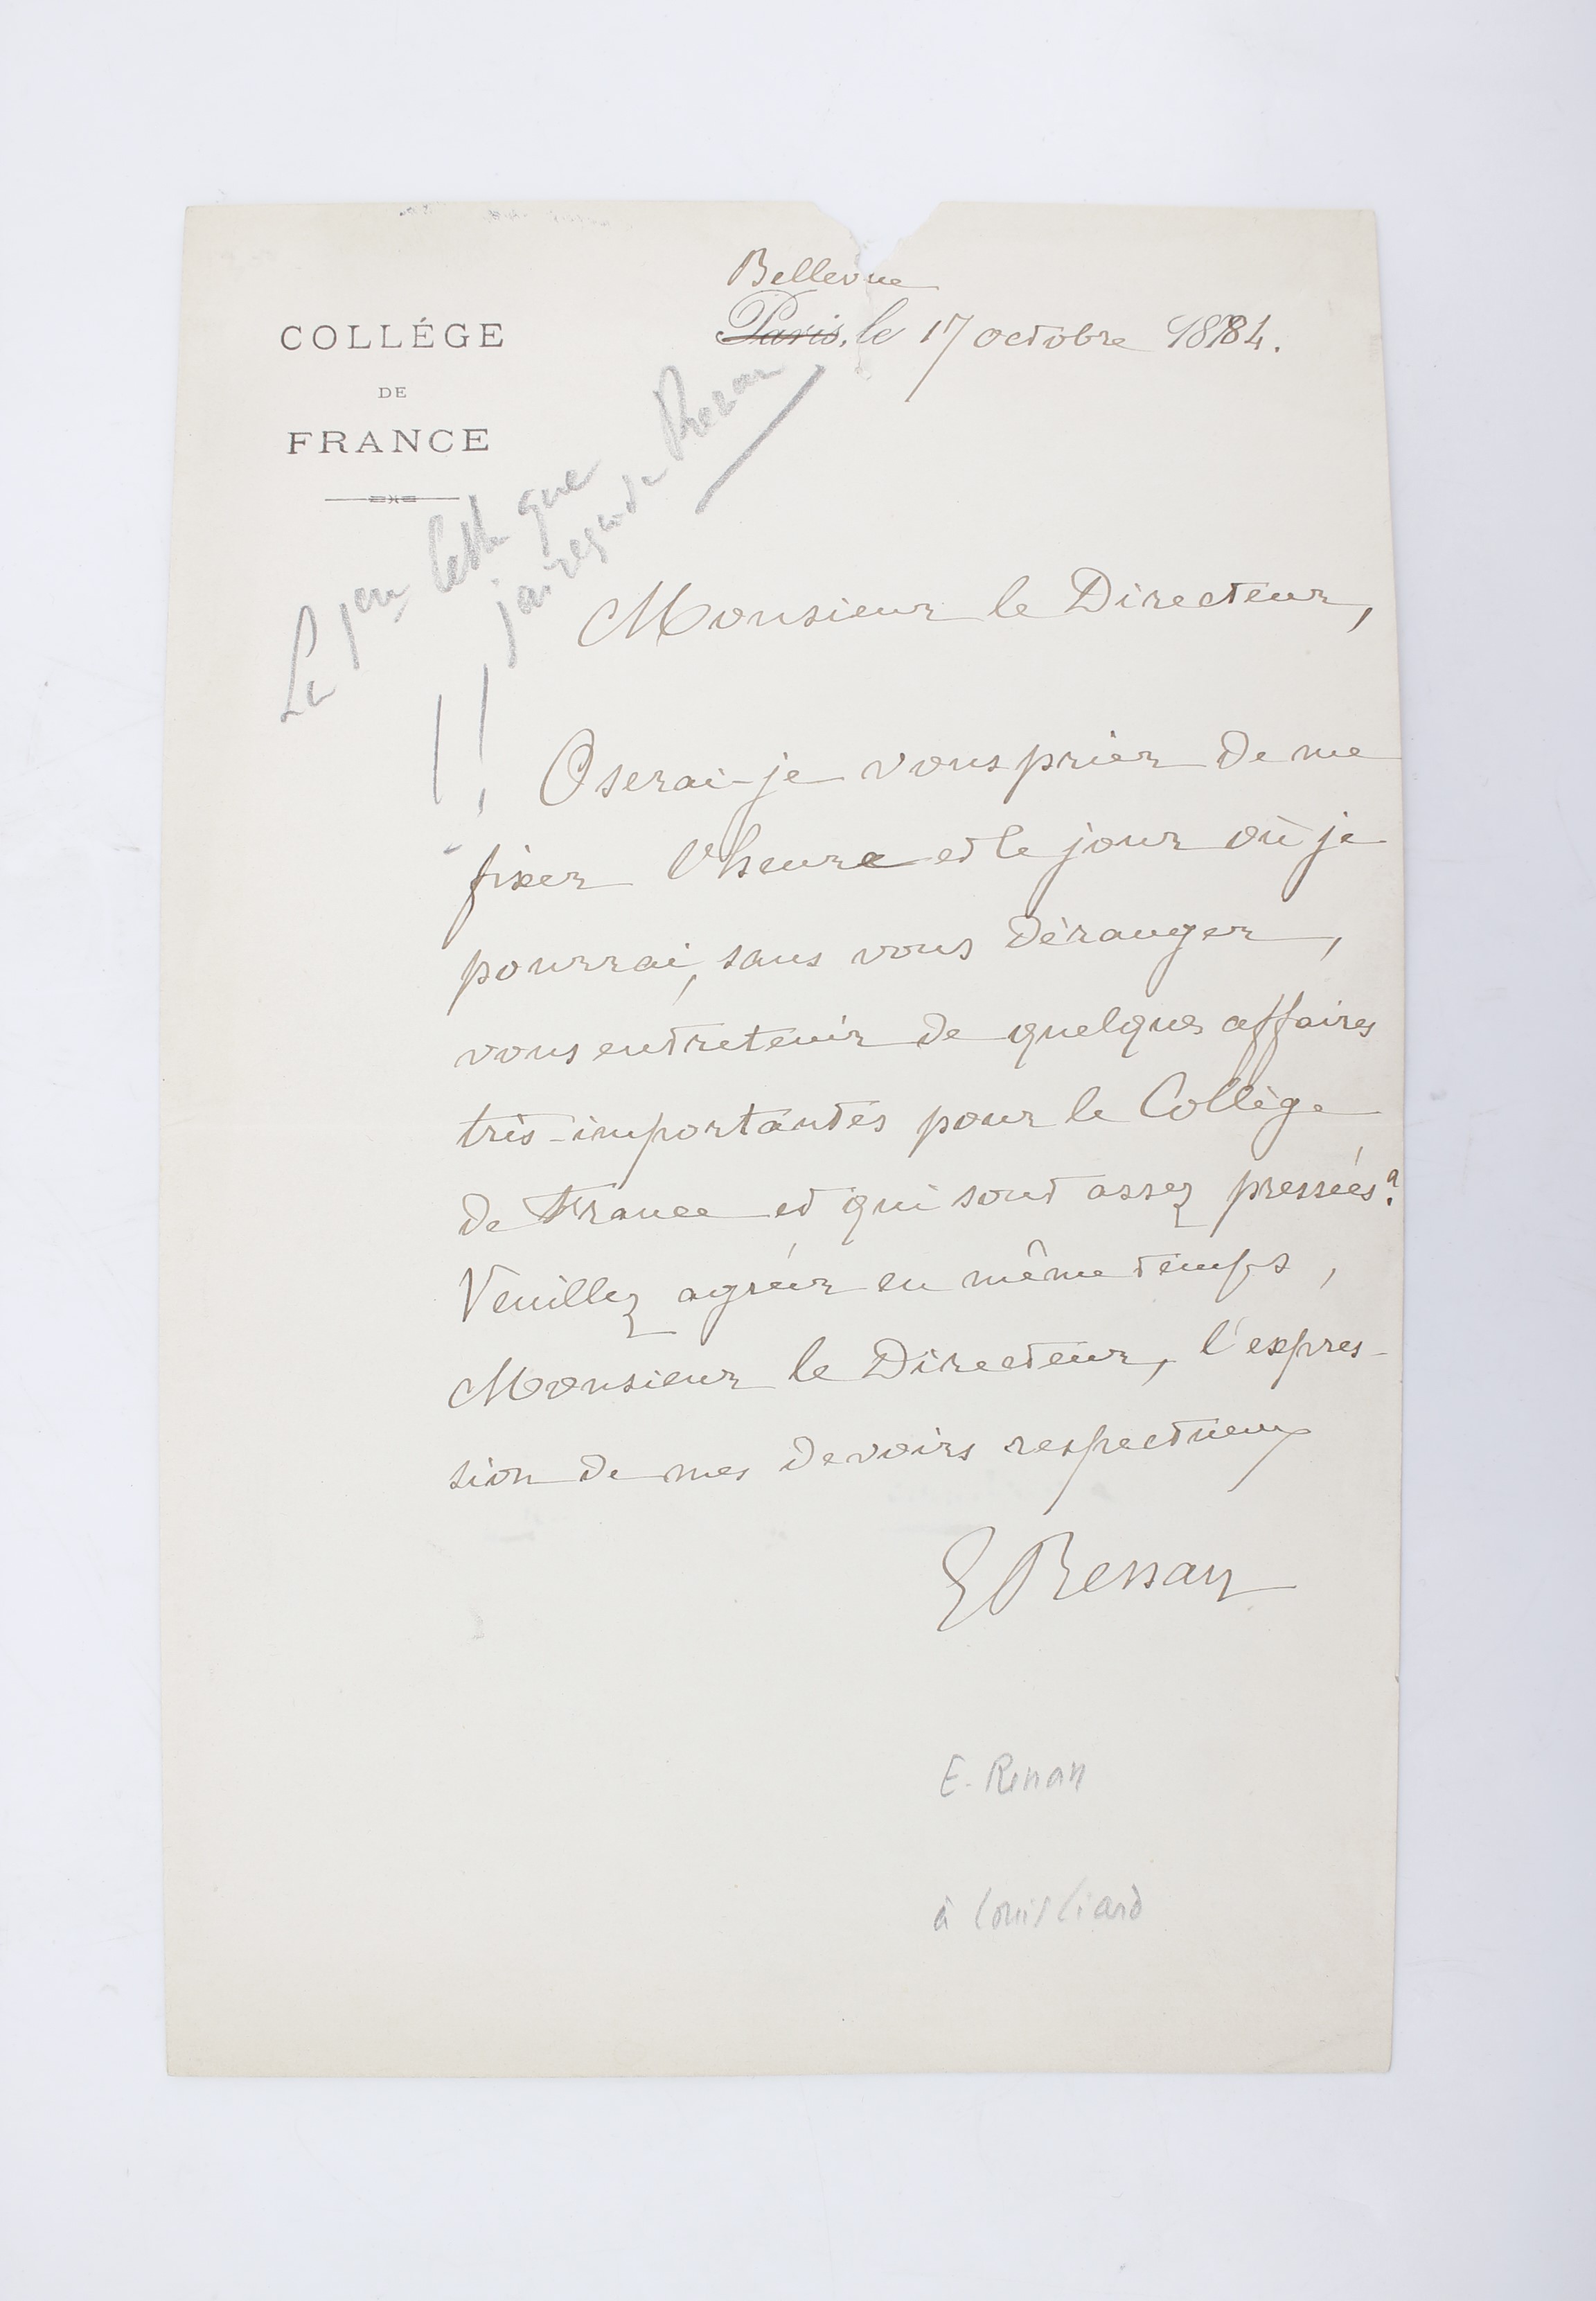 COLLÉGE
DE
FRANCE
Bellevue
Paris, le 17 octobre 1884.
La 1ère lettre que
j'ai reçu de Renan
!!
Monsieur le Directeur,
Oserai-je vous prier de me
fixer l'heure et le jour où je
pourrai, sans vous déranger,
vous entretenir de quelques affaires
très-importantes pour le Collège
de France et qui sont assez pressées?
Veuillez agréer en même temps,
Monsieur le Directeur, l'expres-
sion de mes devoirs respectueux
E Renan
E. Renan
à Louis Liard